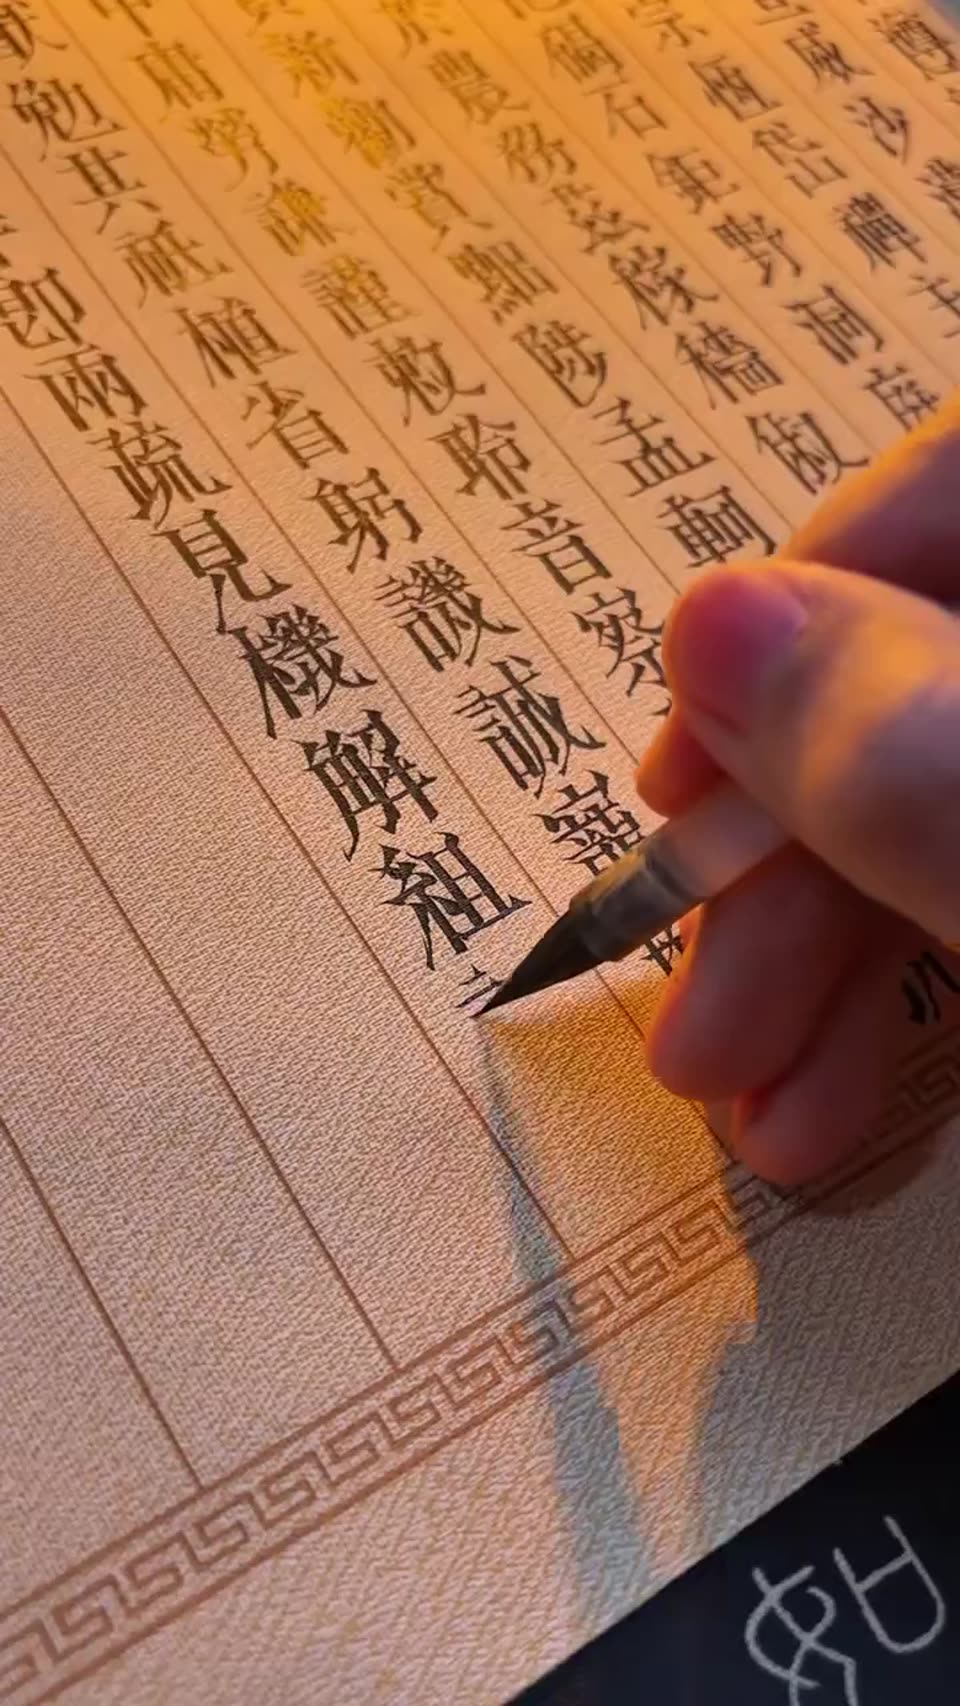 遵
威沙
宗恆岱禪主
碣石鉅野洞庭
於農務茲稼穡俶
新勸賞黜陟孟軻
中庸勞謙謹敕聆音察
猷勉其祗植省躬譏誡寵
即兩疏見機解組